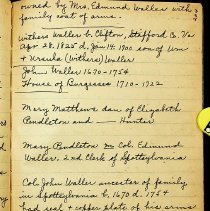 owned by Mrs. Edmund Waller with
family coat of arms.
Withers Waller b. Clifton, Stafford Co. Va
Apr 28. 1825 d. Jan 14. 1900. son of Wm
+ Ursula (Withers) Waller
John Waller 1670-1754
House of Burgesses 1710-1722
Mery Matthews dau of Elizabeth
Pendleton and — Hunter
Mary Pendleton m Col. Edmund
Waller. 2nd Clerk of Spottsylvania
Col. John Waller ancestor of family
in Spottsylvania b. 1670 d. 1754
had seal + copper plate of his arms